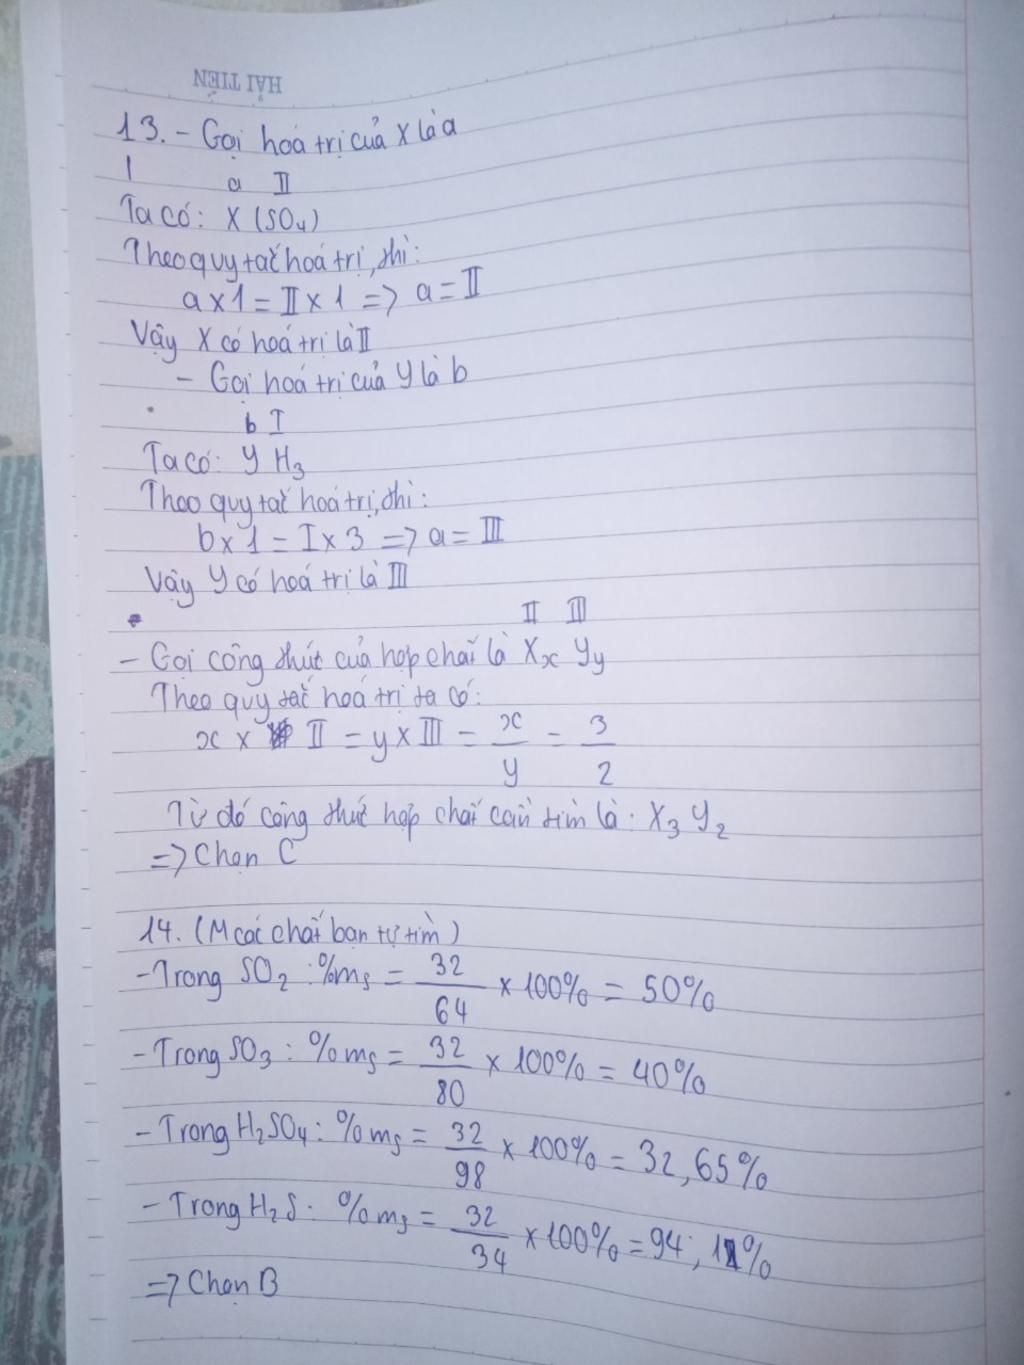 HẢI TIẾN
13. - Gọi hoá trị của X là a
a II
Ta có: X (SO4)
Theo quy tắc hoá trị, thì:
a x 1 = II x 1 => a = II
Vậy X có hoá trị là II
- Gọi hoá trị của Y là b
b I
Ta có: Y H3
Theo quy tắc hoá trị, thì:
b x 1 = I x 3 => a = III
Vậy Y có hoá trị là III
II III
- Gọi công thức của hợp chất là Xx Yy
Theo quy tắc hoá trị ta có:
x x II = y x III = x/y = 3/2
Từ đó công thức hợp chất cần tìm là: X3 Y2
=> Chọn C
14. (M các chất bạn tự tìm)
- Trong SO2 : %mS = 32/64 x 100% = 50%
- Trong SO3 : %mS = 32/80 x 100% = 40%
- Trong H2SO4 : %mS = 32/98 x 100% = 32,65%
- Trong H2S : %mS = 32/34 x 100% = 94,1%
=> Chọn B